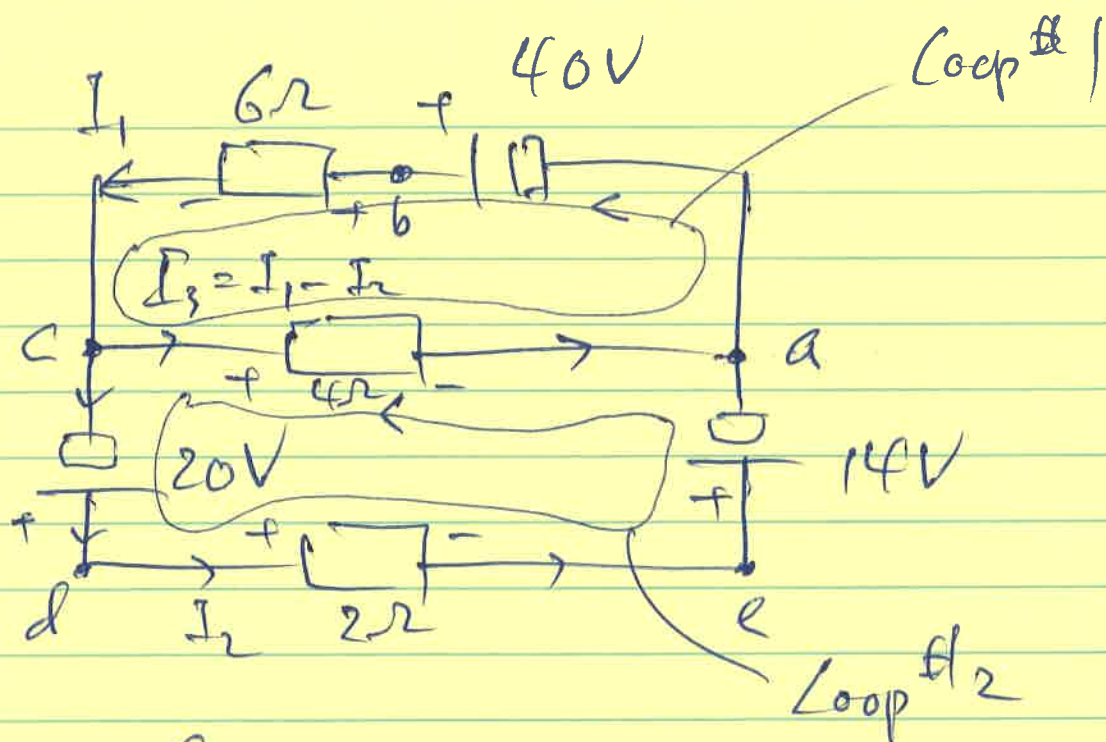 40V
Loop #1
I₁ 6Ω +
- + b
I₃ = I₁ - I₂
C a
+ 4Ω -
20V 14V
+ +
+ -
d I₂ 2Ω e
Loop #2